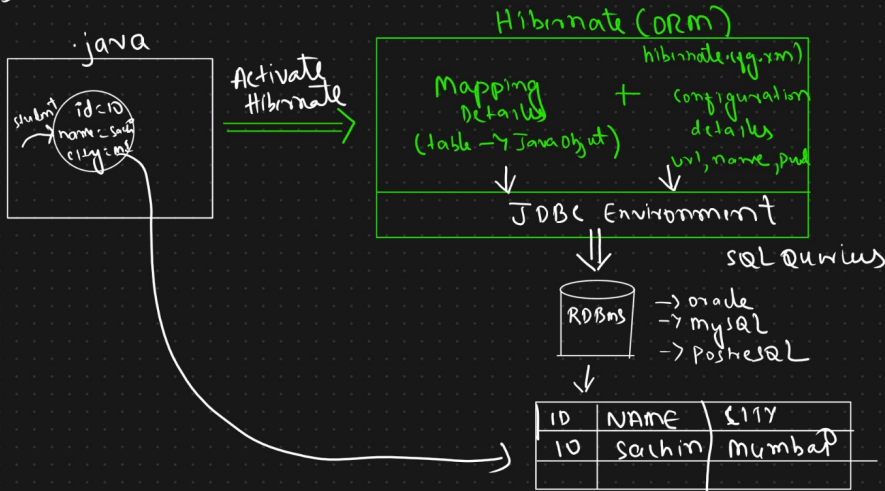 .java
student
id=10
name=sachi
city=MI
Activate
Hibernate
Hibernate (ORM)
Mapping
Details
(table -> Java Object)
+
hibernate.cfg.xml)
configuration
details
url, name, pwd
JDBC Environment
SQL Queries
RDBMS
-> oracle
-> MySQL
-> PostreSQL
ID NAME CITY
10 Sachin Mumbai